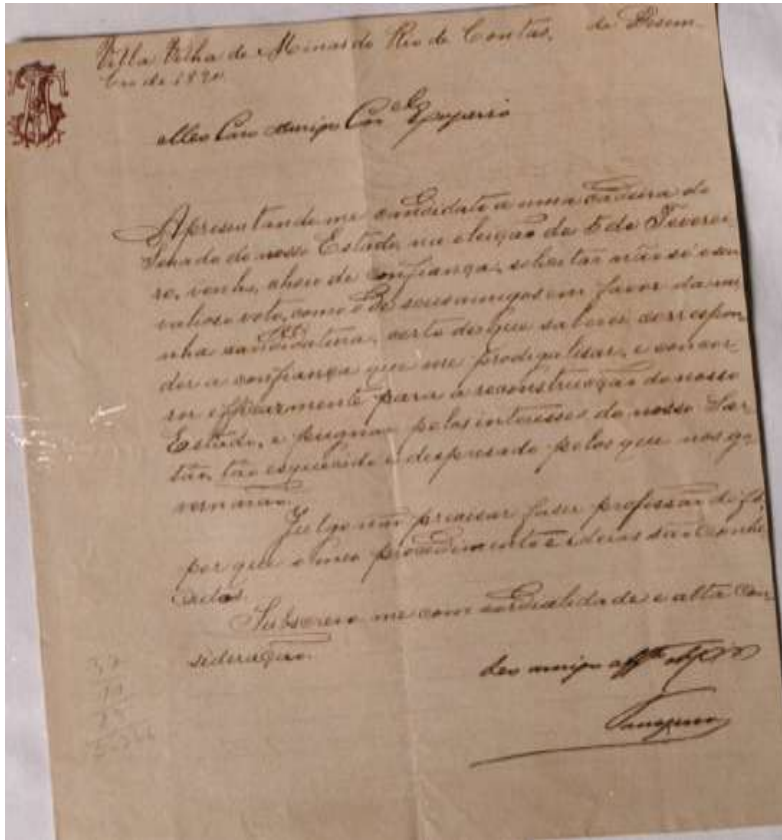 Villa Velha de Minas do Rio de Contas, de Desem-
bro de 1890
Meu Caro Amigo Cor.el Exuperio
Apresentando me candidato a uma Cadeira do
Senado do nosso Estado, na eleição de 5 de Feverei-
ro, venho, cheio de confiança, solicitar não só o seu
valioso voto, como o de seus amigos em favor da mi-
nha candidatura, certo de que saberei correspon-
der a confiança que me prodigalisar, e concor-
rer efficazmente para a reconstrucção do nosso
Estado, e pugnar pelos interesses do nosso Ser-
tão, tão esquecido e despresado pelos que nos go-
vernarão.
Julgo não precisar faser profissão de fé,
por que o meu procedimento e ideias são conhe-
cidos.
Subscrevo me com cordialidade e alta Con-
sideração.
Seu amigo